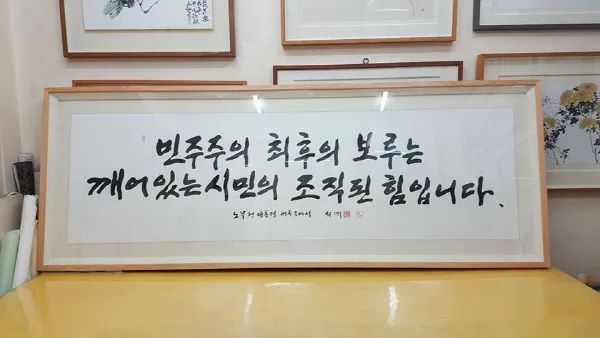 민주주의 최후의 보루는
깨어있는 시민의 조직된 힘입니다.
노무현 대통령